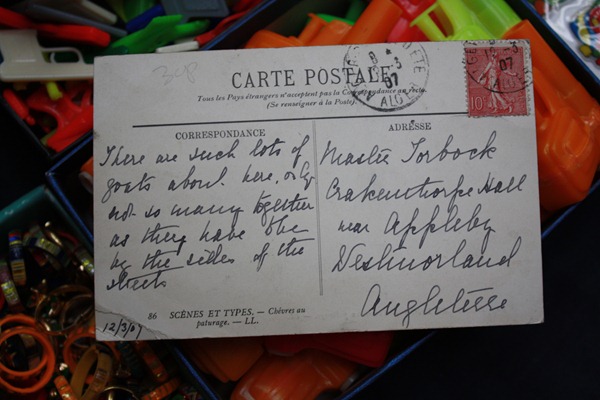 3cp
CARTE POSTALE
Tous les Pays étrangers n'acceptent pas la Correspondance au recto.
(Se renseigner à la Poste).
8 - 3
07
ALGER
07
10
CORRESPONDANCE
ADRESSE
There are such lots of
goats about here, only
not so many together
as they have the
by the sides of the
streets
Master Torbock
Crakenthorpe Hall
near Appleby
Westmorland
Angleterre
86 SCÈNES ET TYPES. — Chèvres au
paturage. — LL.
12/3/07